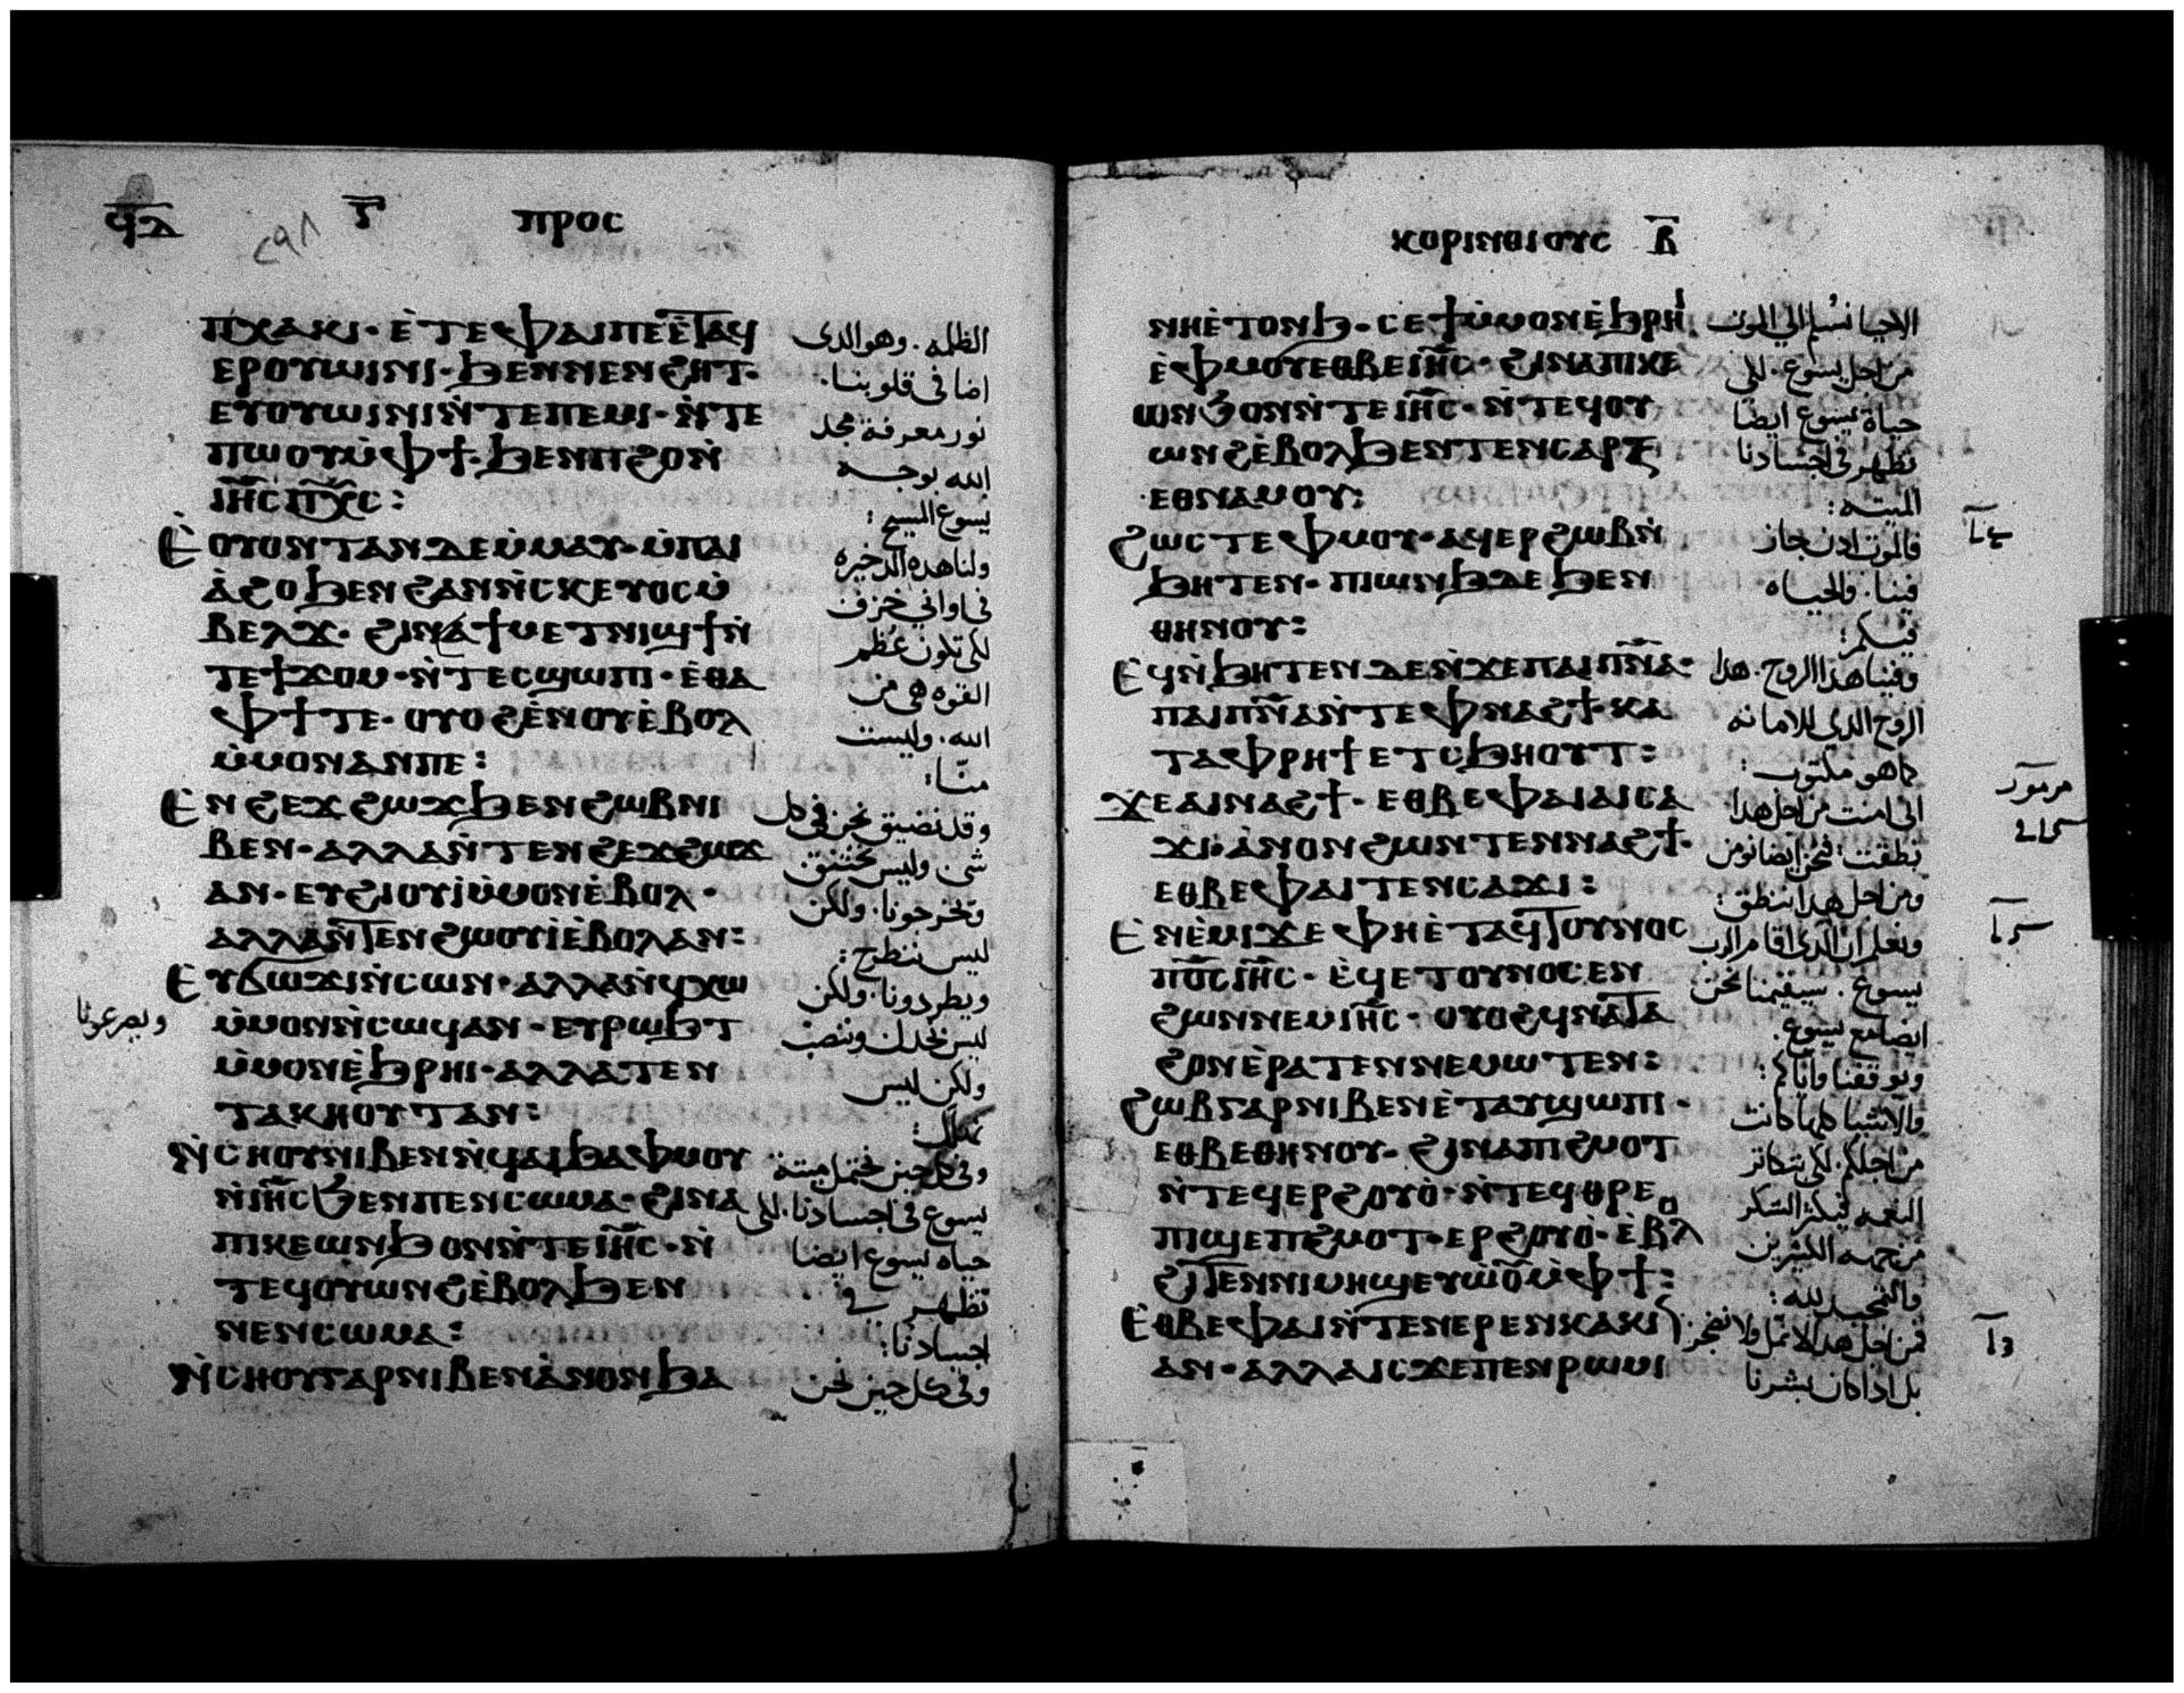 ϥⲇ
ⲅ̅
ⲡⲣⲟⲥ
ⲡⲭⲁⲕⲓ· ⲉ̀ⲧⲉ ⲫⲁⲓ ⲡⲉ ⲉ̀ⲧⲁϥ
ⲉⲣⲟⲩⲱⲓⲛⲓ· ϧⲉⲛ ⲛⲉⲛϩⲏⲧ·
ⲉⲩⲟⲩⲱⲓⲛⲓ ⲛ̀ⲧⲉ ⲡⲉⲙⲓ· ⲛ̀ⲧⲉ
ⲡⲱⲟⲩ ⲙ̀ⲫϯ· ϧⲉⲛ ⲡϩⲟ ⲛ̀
ⲓⲏ̅ⲥ ⲡⲭ̅ⲥ:
ⲉ̀ⲟⲩⲟⲛⲧⲁⲛ ⲇⲉ ⲙ̀ⲙⲁⲩ· ⲙ̀ⲡⲁⲓ
ⲁ̀ϩⲟ ϧⲉⲛ ϩⲁⲛⲛ̀ⲥⲕⲉⲩⲟⲥ ⲙ̀
ⲃⲉⲗϫ· ϩⲓⲛⲁ ϯⲙⲉⲧⲛⲓϣϯ ⲛ̀
ⲧⲉ ϯϫⲟⲙ· ⲛ̀ⲧⲉⲥϣⲱⲡⲓ· ⲉ̀ⲑⲁ
ⲫϯ ⲧⲉ· ⲟⲩⲟϩ ⲉ̀ⲛⲟⲩⲉ̀ⲃⲟⲗ
ⲙ̀ⲙⲟⲛ ⲁⲛ ⲡⲉ:
ⲉ̀ⲛϩⲉϫϩⲱϫ ϧⲉⲛ ϩⲱⲃ ⲛⲓ
ⲃⲉⲛ· ⲁⲗⲗⲁ ⲛ̀ⲧⲉⲛϩⲉϫϩⲱϫ
ⲁⲛ· ⲉⲩϩⲓⲟⲩⲓ̀ ⲙ̀ⲙⲟⲛ ⲉ̀ⲃⲟⲗ·
ⲁⲗⲗⲁ ⲛ̀ⲧⲉⲛϩⲱⲟⲩⲓ̀ ⲉ̀ⲃⲟⲗ ⲁⲛ:
ⲉⲩϭⲟϫⲓ ⲛ̀ⲥⲱⲛ· ⲁⲗⲗⲁ ⲛ̀ϥⲭⲱ
ⲙ̀ⲙⲟⲛ ⲛ̀ⲥⲱϥ ⲁⲛ· ⲉⲩⲣⲱϧⲧ
ⲙ̀ⲙⲟⲛ ⲉ̀ϧⲣⲏⲓ· ⲁⲗⲗⲁ ⲧⲉⲛ
ⲧⲁⲕⲏⲟⲩⲧ ⲁⲛ:
ⲛ̀ⲥⲏⲟⲩ ⲛⲓⲃⲉⲛ ⲛ̀ϥⲁⲓ ϧⲁ ⲫⲙⲟⲩ
ⲛ̀ⲓⲏ̅ⲥ ϧⲉⲛ ⲡⲉⲛⲥⲱⲙⲁ· ϩⲓⲛⲁ
ⲡⲓⲕⲉⲱⲛϧ ⲟⲛ ⲛ̀ⲧⲉ ⲓⲏ̅ⲥ· ⲛ̀
ⲧⲉϥⲟⲩⲱⲛϩ ⲉ̀ⲃⲟⲗ ϧⲉⲛ
ⲛⲉⲛⲥⲱⲙⲁ:
ⲛ̀ⲥⲏⲟⲩ ⲅⲁⲣ ⲛⲓⲃⲉⲛ ⲁ̀ⲛⲟⲛ ϧⲁ
الظلمه. وهو الدى
اضا فى قلوبنا.
نور معرفة مجد
الله بوجه
يسوع المسيح:
ولنا هده الدخيره
فى اوانى خزف
لكى تكون عظم
القوه هى من
الله. وليست
منا:
وقد نضيق نحن فى كل
شى وليس نختنق
وتخرجونا. ولكن
ليس ننطرح:
ويطردونا. ولكن
ليس نخدل
ويصرعونا
ولكن ليس
نهلك:
وفى كل حين نحتمل ميتة
يسوع فى اجسادنا. لكى
حياه يسوع ايضا
تظهر فى
اجسادنا:
وفى كل حين نحن
ⲕⲟⲣⲓⲛⲑⲓⲟⲩⲥ ⲃ̅
ⲛⲏ ⲉ̀ⲧⲟⲛϧ· ⲥⲉϯ ⲙ̀ⲙⲟⲛ ⲉ̀ϧⲣⲏⲓ
ⲉ̀ⲫⲙⲟⲩ ⲉⲑⲃⲉ ⲓⲏ̅ⲥ· ϩⲓⲛⲁ ⲡⲓⲕⲉ
ⲱⲛϧ ⲟⲛ ⲛ̀ⲧⲉ ⲓⲏ̅ⲥ· ⲛ̀ⲧⲉϥⲟⲩ
ⲱⲛϩ ⲉ̀ⲃⲟⲗ ϧⲉⲛ ⲧⲉⲛⲥⲁⲣⲝ
ⲉⲑⲛⲁⲙⲟⲩ:
ϩⲱⲥⲧⲉ ⲫⲙⲟⲩ· ⲁϥⲉⲣϩⲱⲃ ⲛ̀
ϧⲏⲧⲉⲛ· ⲡⲓⲱⲛϧ ⲇⲉ ϧⲉⲛ
ⲑⲏⲛⲟⲩ:
ⲉϥⲛ̀ϧⲏⲧⲉⲛ ⲇⲉ ⲛ̀ϫⲉ ⲡⲁⲓⲡⲛ̅ⲁ·
ⲡⲁⲓⲡⲛ̅ⲁ ⲛ̀ⲧⲉ ⲫⲛⲁϩϯ· ⲕⲁ
ⲧⲁ ⲫⲣⲏϯ ⲉⲧⲥϧⲏⲟⲩⲧ:
ϫⲉ ⲁⲓⲛⲁϩϯ· ⲉⲑⲃⲉ ⲫⲁⲓ ⲁⲓⲥⲁ
ϫⲓ· ⲁ̀ⲛⲟⲛ ϩⲱⲛ ⲧⲉⲛⲛⲁϩϯ·
ⲉⲑⲃⲉ ⲫⲁⲓ ⲧⲉⲛⲥⲁϫⲓ:
ⲉ̀ⲛⲉ̀ⲙⲓ ϫⲉ ⲫⲏ ⲉ̀ⲧⲁϥⲧⲟⲩⲛⲟⲥ
ⲡⲟ̅ⲥ ⲓⲏ̅ⲥ· ⲉϥⲉⲧⲟⲩⲛⲟⲥⲉⲛ
ϩⲱⲛ ⲛⲉⲙ ⲓⲏ̅ⲥ· ⲟⲩⲟϩ ϥⲛⲁⲧⲁ
ϩⲟⲛ ⲉ̀ⲣⲁⲧⲉⲛ ⲛⲉⲙⲱⲧⲉⲛ:
ϩⲱⲃ ⲅⲁⲣ ⲛⲓⲃⲉⲛ ⲉ̀ⲧⲁⲩϣⲱⲡⲓ·
ⲉⲑⲃⲉ ⲑⲏⲛⲟⲩ· ϩⲓⲛⲁ ⲡⲓϩⲙⲟⲧ
ⲛ̀ⲧⲉϥⲉⲣϩⲟⲩⲟ̀· ⲛ̀ⲧⲉϥⲑⲣⲉ
ⲡⲓϣⲉⲡϩⲙⲟⲧ· ⲉⲣϩⲟⲩⲟ̀· ⲉ̀ⲃⲟⲗ
ϩⲓⲧⲉⲛ ⲛⲓⲙⲏϣ ⲉⲩⲱ̀ⲟⲩ ⲙ̀ⲫϯ:
ⲉⲑⲃⲉ ⲫⲁⲓ ⲛ̀ⲧⲉⲛⲉⲣⲉⲛⲕⲁⲕⲓ
ⲁⲛ· ⲁⲗⲗⲁ ⲓⲥϫⲉ ⲡⲉⲛⲣⲱⲙⲓ
الاحيا نسلم الى الموت
من اجل يسوع. لكى
حياة يسوع ايضا
تظهر فى اجسادنا
الميته:
فالموت ادن جاز
فينا. والحياه
فيكم:
وفينا هدا الروح. هدا
الروح الدى للامانه
كما هو مكتوب:
انى امنت من اجل هدا
نطقت. فنحن ايضا نومن
ومن اجل هدا ننطق:
ونعلم ان الدى اقام الرب
يسوع. سيقيمنا نحن
ايضا مع يسوع.
ويوقفنا واياكم:
والاشيا كلها كانت
من اجلكم. لكى تتكاتر
النعمه فيكتر الشكر
من جهه الكثيرين
والتمجيد لله:
فمن اجل هدا لا نمل ولا نضجر
بل ادا كان بشرنا
مزمور